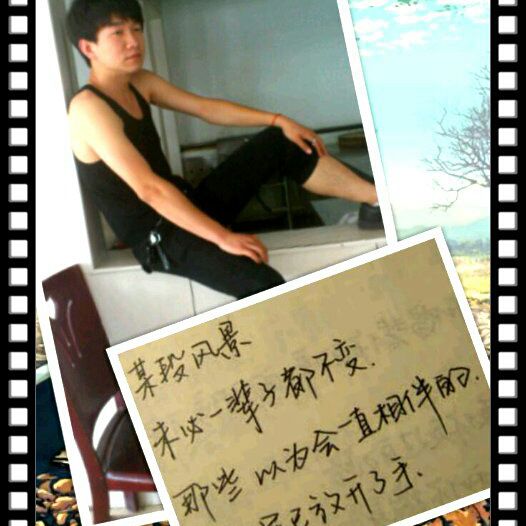 某段风景
未必一辈子都不变.
那些以为会一直相伴的.
已放开了手.